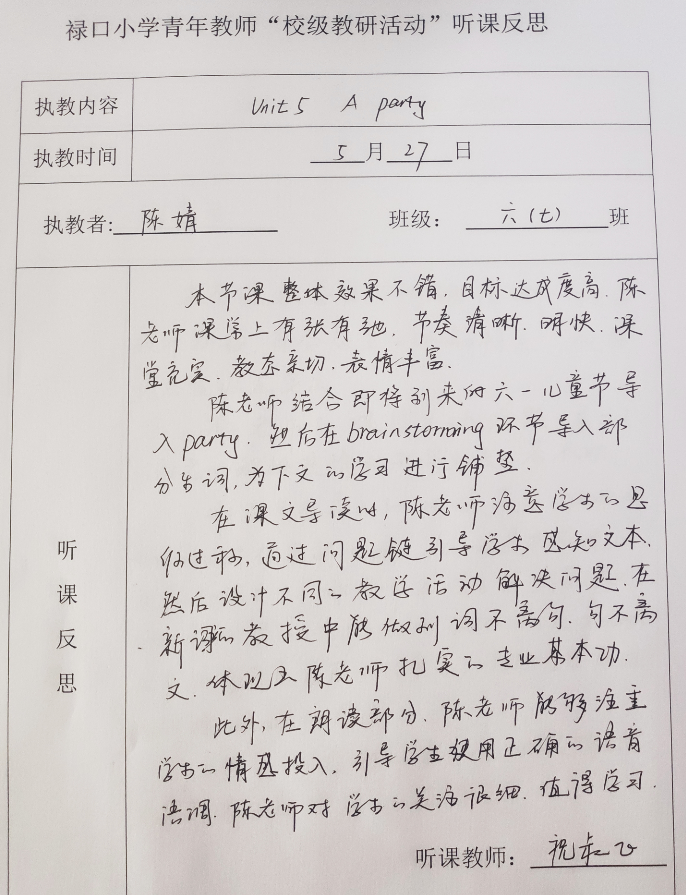 禄口小学青年教师“校级教研活动”听课反思
执教内容 Unit 5 A party
执教时间 5月27日
执教者: 陈婧 班级: 六(七)班
听课反思
本节课整体效果不错,目标达成度高.陈
老师课堂上有张有弛.节奏清晰.明快.课
堂充实.教态亲切.表情丰富.
陈老师结合即将到来的六一儿童节导
入party.然后在brainstorming环节导入部
分生词,为下文的学习进行铺垫.
在课文导读时,陈老师注意学生的思
维过程,通过问题链引导学生感知文本.
然后设计不同的教学活动解决问题.在
新课的教授中能做到词不离句.句不离
文.体现了陈老师扎实的专业基本功.
此外,在朗读部分.陈老师能够注重
学生的情感投入.引导学生使用正确的语音
语调.陈老师对学生的关注很细.值得学习.
听课教师: 祝